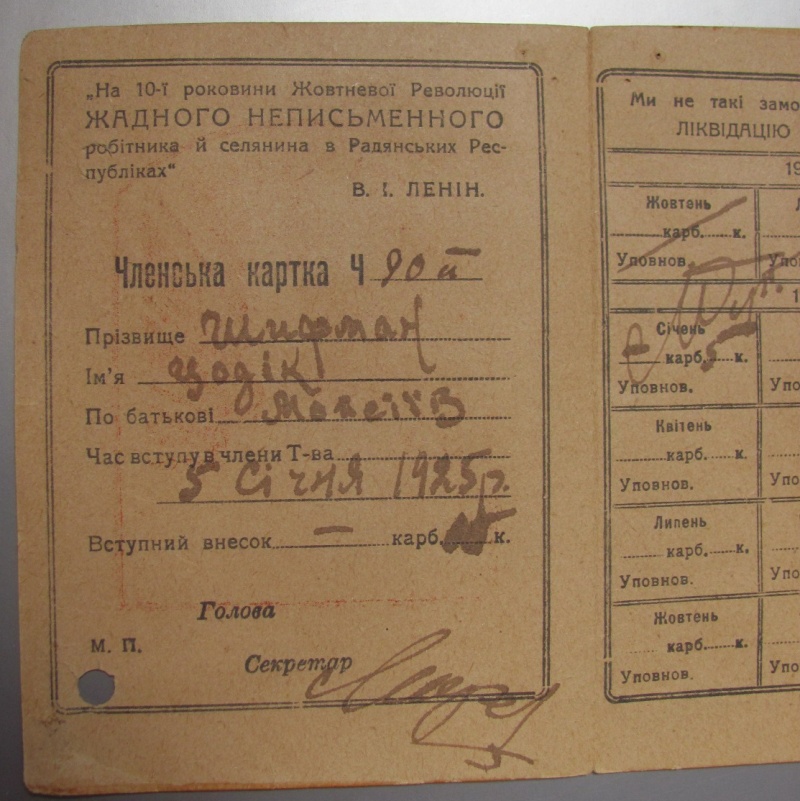 „На 10-ї роковини Жовтневої Революції
ЖАДНОГО НЕПИСЬМЕННОГО
робітника й селянина в Радянських Рес-
публіках“
В. І. ЛЕНІН.
Членська картка Ч 90
Прізвище Шифман
Ім'я Цодік
По батькові Мойсеїв
Час вступу в члени Т-ва
5 Січня 1925 р.
Вступний внесок — карб. к.
Голова
М. П.
Секретар
Ми не такі
ЛІКВІДАЦІЮ
Жовтень
карб. к.
Уповнов.
Січень
— карб. 5 к.
Уповнов.
Квітень
карб. к.
Уповнов.
Липень
карб. к.
Уповнов.
Жовтень
карб. к.
Уповнов.